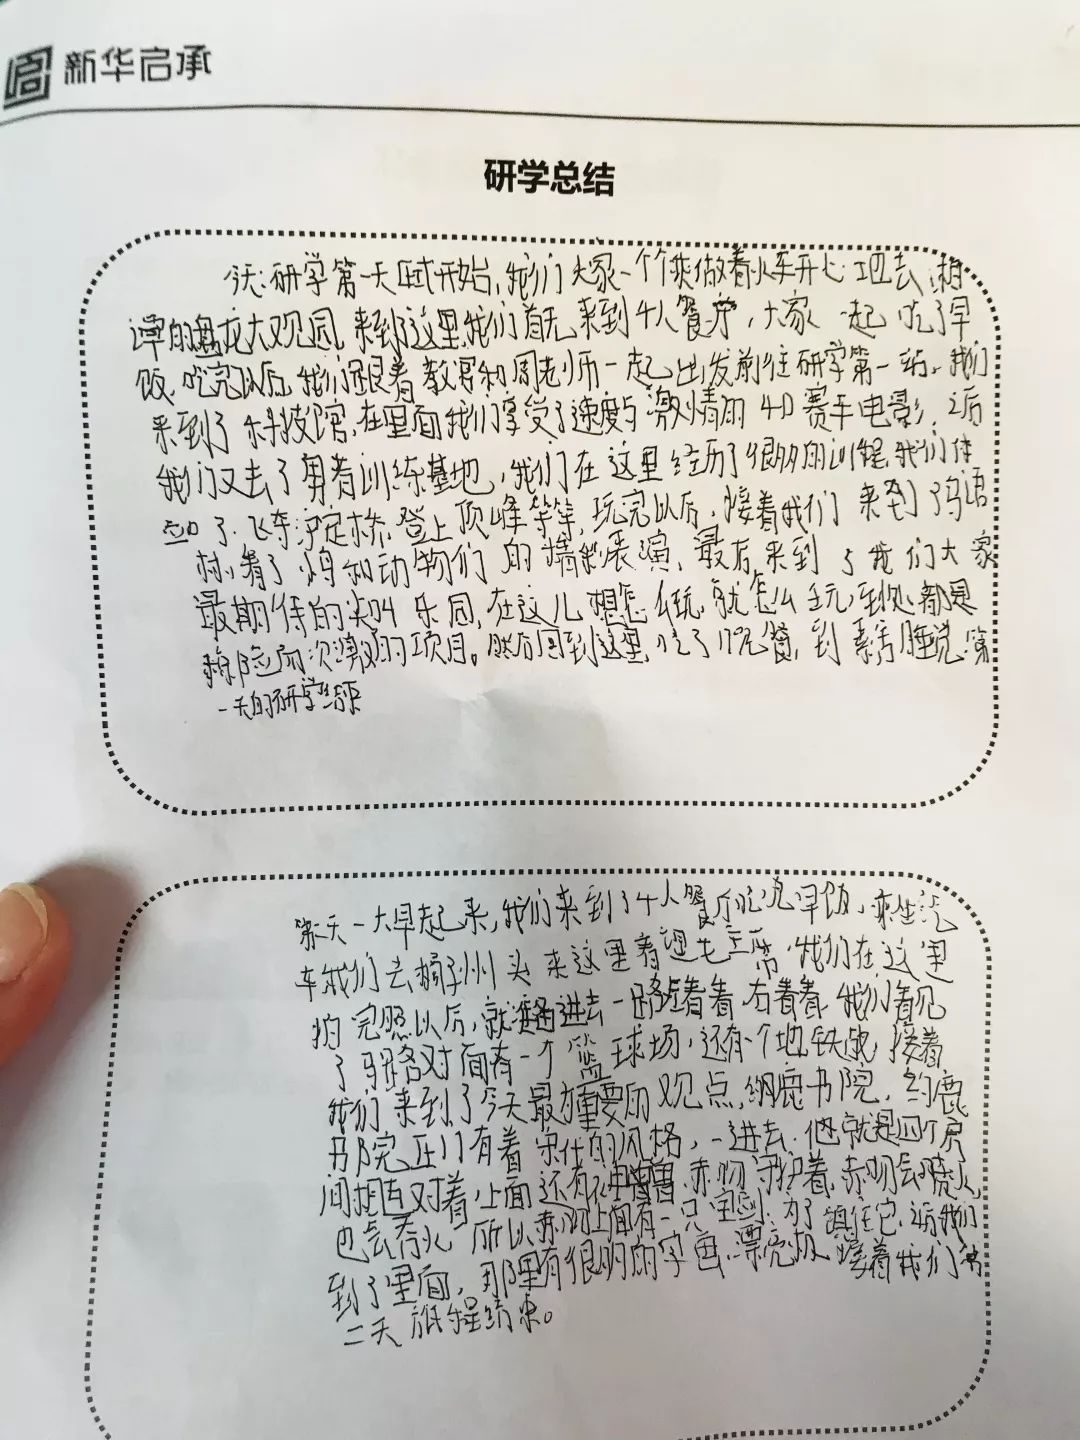 新华启承
研学总结
今天:研学第一天正式开始,我们大家一个个乘做着火车开心地去,湘
潭的盘龙大观园,来到了这里我们首先来到4人餐厅,大家一起吃了早
饭,吃完以后,我们跟着教官和周老师一起出发前往研学第一站。我们
来到了科技馆,在里面我们享受了速度与激情的4D赛车电影,之后
我们又去了勇者训练基地,我们在这里经历了很多的训练,我们体
了飞夺泸定桥,登上顶峰等等,玩完以后,接着我们来到了鸟语
林,看了鸟和动物们的精彩表演,最后来到了我们大家
最期待的尖叫乐园,在这儿想怎么玩,就怎么玩,到处都是
惊险而刺激的项目。然后回到这里,吃了晚餐,到宿舍睡觉.第
一天的研学结束
第二天一大早起来,我们来到了4人餐厅吃完早饭,乘坐汽
车我们去橘子洲头来这里看望毛主席,我们在这里
拍完照以后,就进去一路左看看,右看看,我们看见
了马路对面有一个篮球场,还有个地铁站,接着
我们来到了今天最重要的观点,岳麓书院,
书院正门有着宋代的风格,一进去,他就是四个房
间相互对着,上面还有
也会 所以 上面有一只宝剑,为了镇住它,之后我们
到了里面,那里有很多的字画,漂亮极,接着我们第
二天旅程结束。